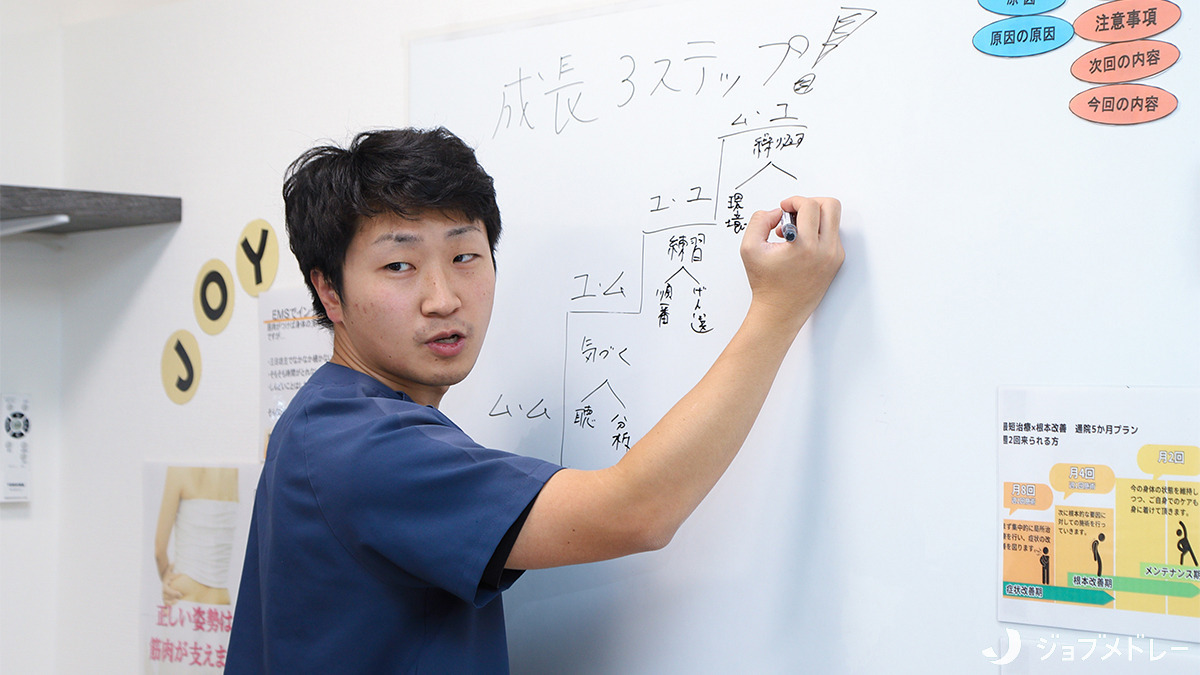 成長 3ステップ
ム・ユ
繰り返す
環境
ユ・ユ
練習
順番
ユ・ム
気づく
聴
分析
ム・ム
JOY
EMSでイン
正しい姿勢は
筋肉が支えま
原因
原因の原因
注意事項
次回の内容
今回の内容
短治療×根本改善 通院5か月プラン
2回来られる方
月8回
月4回
月2回
次に根本的な要因に
対しての施術を行っ
ていきます。
今の身体の状態を維持し
つつ、ご自身でのケアも
身に着けて頂きます。
ず集中的に局所治
を行い、症状の改
を図ります。
症状改善期
根本改善期
メンテナンス期
ジョブメドレー